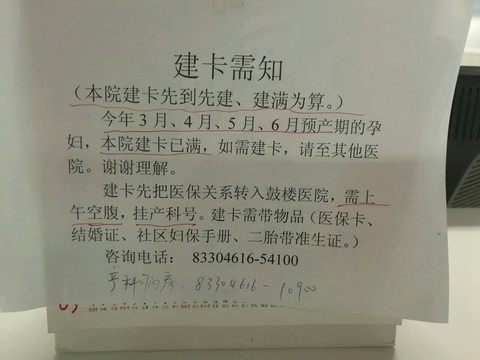 建卡需知
（本院建卡先到先建、建满为算。）
今年3月、4月、5月、6月预产期的孕
妇，本院建卡已满，如需建卡，请至其他医
院。谢谢理解。
建卡先把医保关系转入鼓楼医院，需上
午空腹，挂产科号。建卡需带物品（医保卡、
结婚证、社区妇保手册、二胎带准生证。）
咨询电话：83304616-54100
产科病房：83304616-10900